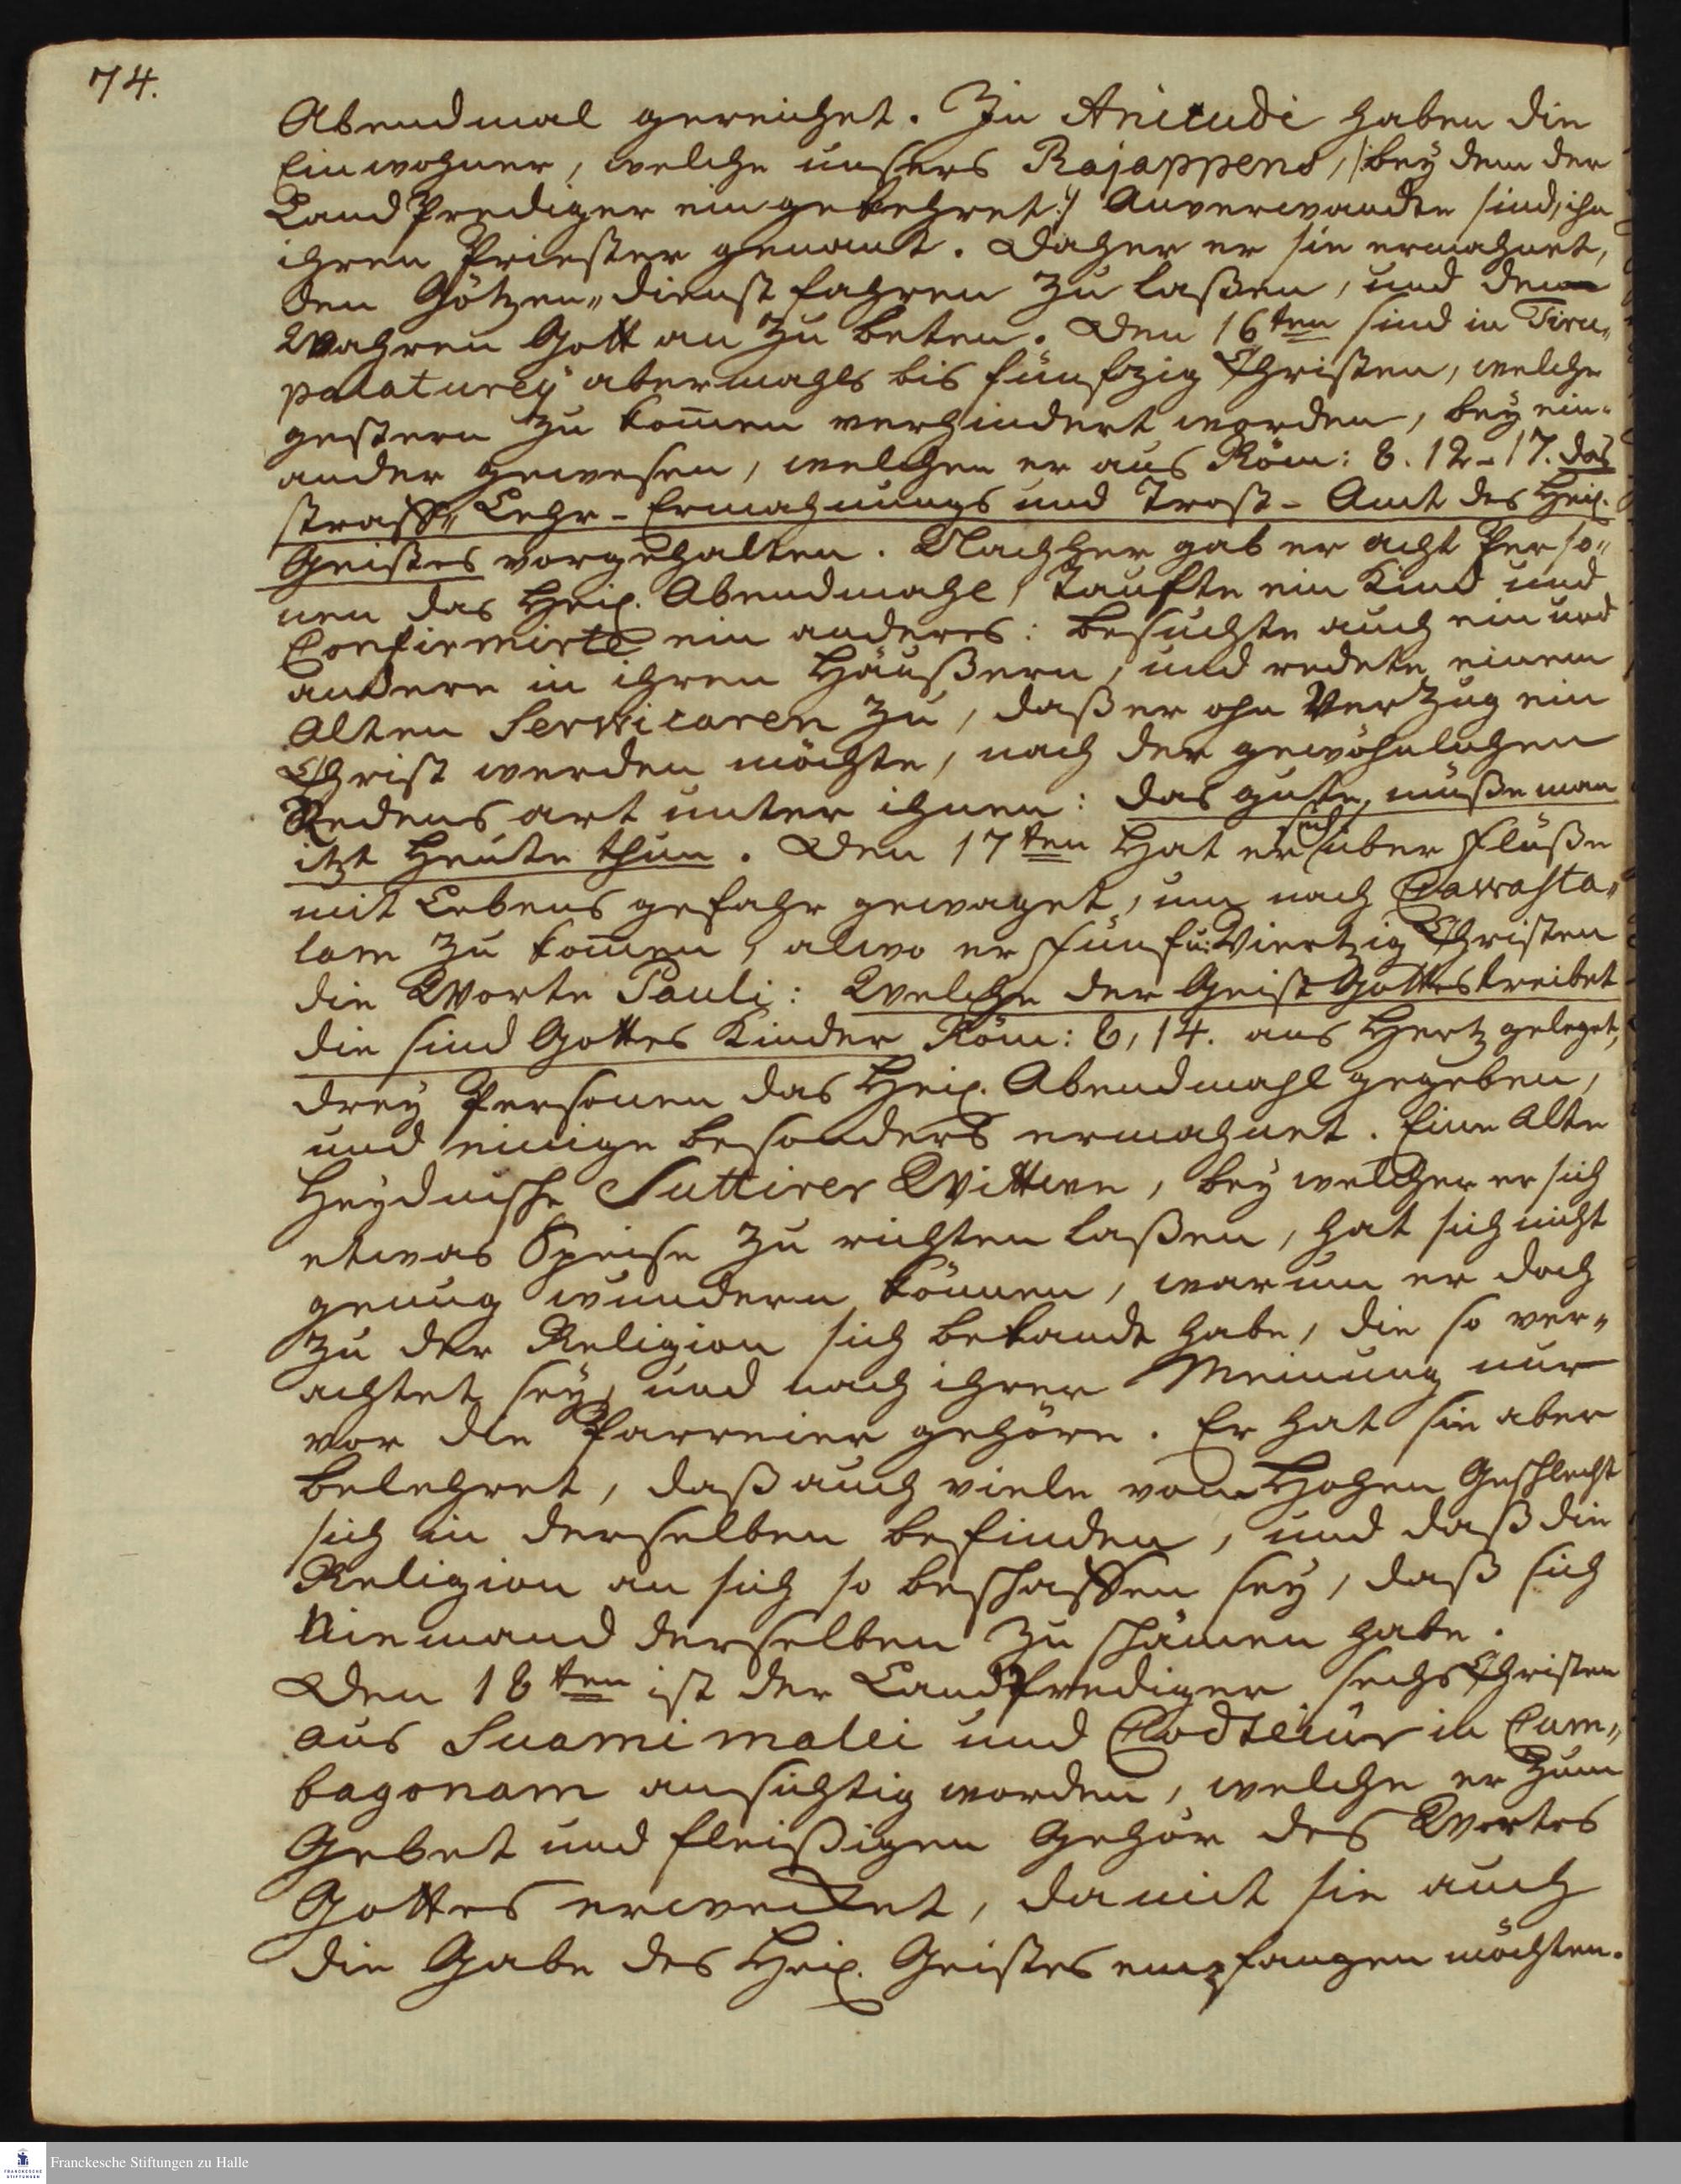 74.
Abendmal gereichet. In Anicudi haben die
Einwohner, welche unsers Rajappens, /:bey dem der
Land Prediger eingekehret:/ Anverwandte sind, ihn
ihren Priester genant. Daher er sie ermahnet,
den Götzen„dienst fahren zu laßen, und dem
Wahren Gott an zu beten. Den 16ten sind in Tiru„
palaturey abermahls bis fünfzig Christen, welche
gestern zu kom̅en verhindert worden, bey ein„
ander gewesen, welchen er aus Röm: 8. 12-17. das
straff„ Lehr- Ermahnungs und Trost- Amt des Heil.
Geistes vorgehalten. Nachher gab er acht Perso„
nen das Heil. Abendmahl, Taufte ein Kind und
Confirmirte ein anderes: besuchte auch ein und
andern in ihren Häußern, und redete einem
Alten Serwicaren zu, daß er ohn Verzug ein
Christ werden möchte, nach der gewöhnlichen
Redens art unter ihnen: das gute müße man
itzt Heute thun. Den 17ten Hat er sich über Flüße
mit Lebens gefahr gewaget, um nach Cawasta„
lam zu kom̅en, alwo er fünf u: Viertzig Christen
die Worte Pauli: Welche der Geist Gottes treibet
die sind Gottes Kinder Röm: 8, 14. ans Hertz geleget,
drey Personen das Heil. Abendmahl gegeben,
und einige besonders ermahnet. Eine Alte
Heydnische Suttirer Wittwe, bey welcher er sich
etwas Speise zu richten laßen, hat sich nicht
genug wundern können, warum er doch
zu der Religion sich bekandt habe, die so ver„
achtet sey, und nach ihrer Meinung nur
vor die Parreier gehöre. Er hat sie aber
belehret, daß auch viele vom Hohen Geschlecht
sich in derselben befinden, und daß die
Religion an sich so beschaffen sey, daß sich
Niemand derselben zu schämen habe.
Den 18ten ist der Landprediger sechs Christen
aus Suamimalei und Codteiur in Cum„
bagonam ansichtig worden, welche er zum
Gebet und fleißigen Gehör des Wortes
Gottes erwecket, damit sie auch
die Gabe des Heil. Geistes empfangen möchten.
Franckesche Stiftungen zu Halle
FRANCKESCHE
STIFTUNGEN